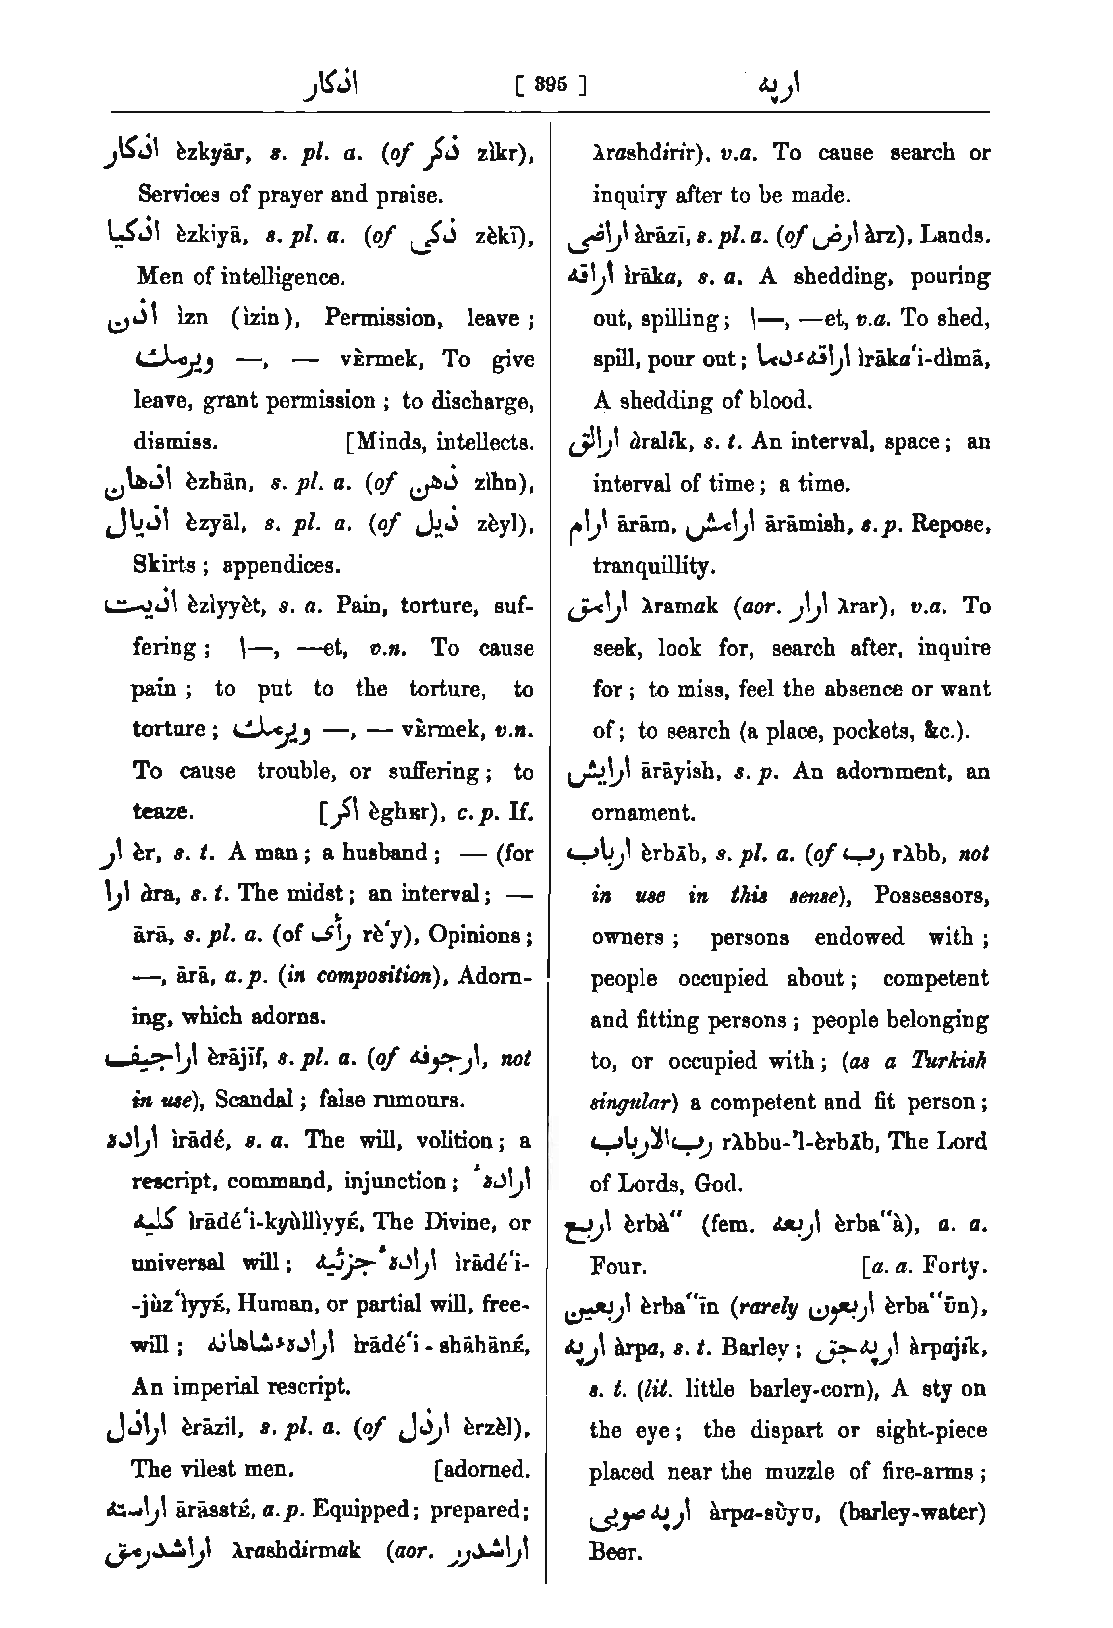 اذكار [ 395 ] ارپه
اذكار èzkyār, s. pl. a. (of ذكر zìkr),
Services of prayer and praise.
اذكيا èzkiyā, s. pl. a. (of ذكى zèkī),
Men of intelligence.
اذن ìzn (ìzin), Permission, leave ;
ويرمك —, — vÈrmek, To give
leave, grant permission ; to discharge,
dismiss. [Minds, intellects.
اذهان èzhān, s. pl. a. (of ذهن zìhn),
اذيال èzyāl, s. pl. a. (of ذيل zèyl),
Skirts ; appendices.
اذيت èzìyyèt, s. a. Pain, torture, suf-
fering ; ا—, —et, v.n. To cause
pain ; to put to the torture, to
torture ; ويرمك —, — vÈrmek, v.n.
To cause trouble, or suffering ; to
teaze. [اكر èghᴇr), c. p. If.
ار èr, s. t. A man ; a husband ; — (for
ارا àra, s. t. The midst ; an interval ; —
ārā, s. pl. a. (of رأى rè‘y), Opinions ;
—, ārā, a.p. (in composition), Adorn-
ing, which adorns.
اراجيف èrājīf, s. pl. a. (of ارجوفه, not
in use), Scandal ; false rumours.
اراده ìrādé, s. a. The will, volition ; a
rescript, command, injunction ; ارادهٔ
كليه ìrādé‘i-kyùllìyyÉ, The Divine, or
universal will ; ارادهٔ جزئيه ìrādé‘i-
-jùz‘ìyyÉ, Human, or partial will, free-
will ; ارادهٔ شاهانه ìrādé‘i - shāhānÉ,
An imperial rescript.
اراذل èrāzil, s. pl. a. (of ارذل èrzèl),
The vilest men. [adorned.
اراسته ārāsstÉ, a.p. Equipped ; prepared ;
اراشدرمق λrashdirmak (aor. اراشدرر
λrashdirir), v.a. To cause search or
inquiry after to be made.
اراضى àrāzī, s. pl. a. (of ارض àrz), Lands.
اراقه ìrāka, s. a. A shedding, pouring
out, spilling ; ا—, —et, v.a. To shed,
spill, pour out ; اراقهٔ دما ìrāka‘i-dìmā,
A shedding of blood.
ارالق àralik, s. t. An interval, space ; an
interval of time ; a time.
ارام ārām, ارامش ārāmish, s. p. Repose,
tranquillity.
ارامق λramak (aor. ارار λrar), v.a. To
seek, look for, search after, inquire
for ; to miss, feel the absence or want
of ; to search (a place, pockets, &c.).
ارايش ārāyish, s. p. An adornment, an
ornament.
ارباب èrbāb, s. pl. a. (of رب rλbb, not
in use in this sense), Possessors,
owners ; persons endowed with ;
people occupied about ; competent
and fitting persons ; people belonging
to, or occupied with ; (as a Turkish
singular) a competent and fit person ;
رب الارباب rλbbu-’l-èrbāb, The Lord
of Lords, God.
اربع èrbà“ (fem. اربعه èrba“à), a. a.
Four. [a. a. Forty.
اربعين èrba“īn (rarely اربعون èrba“ūn),
ارپه àrpa, s. t. Barley ; ارپه جق àrpajik,
s. t. (lit. little barley-corn), A sty on
the eye ; the dispart or sight-piece
placed near the muzzle of fire-arms ;
ارپه صويى àrpa-sùyu, (barley-water)
Beer.